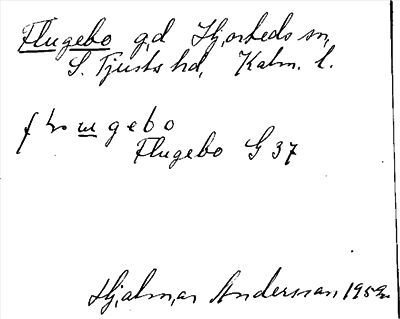 Flugebo gd Hjorteds sn,
S. Tjusts hd, Kalm. l.
Flugebo G 37
Hjalmar Andersson 1952